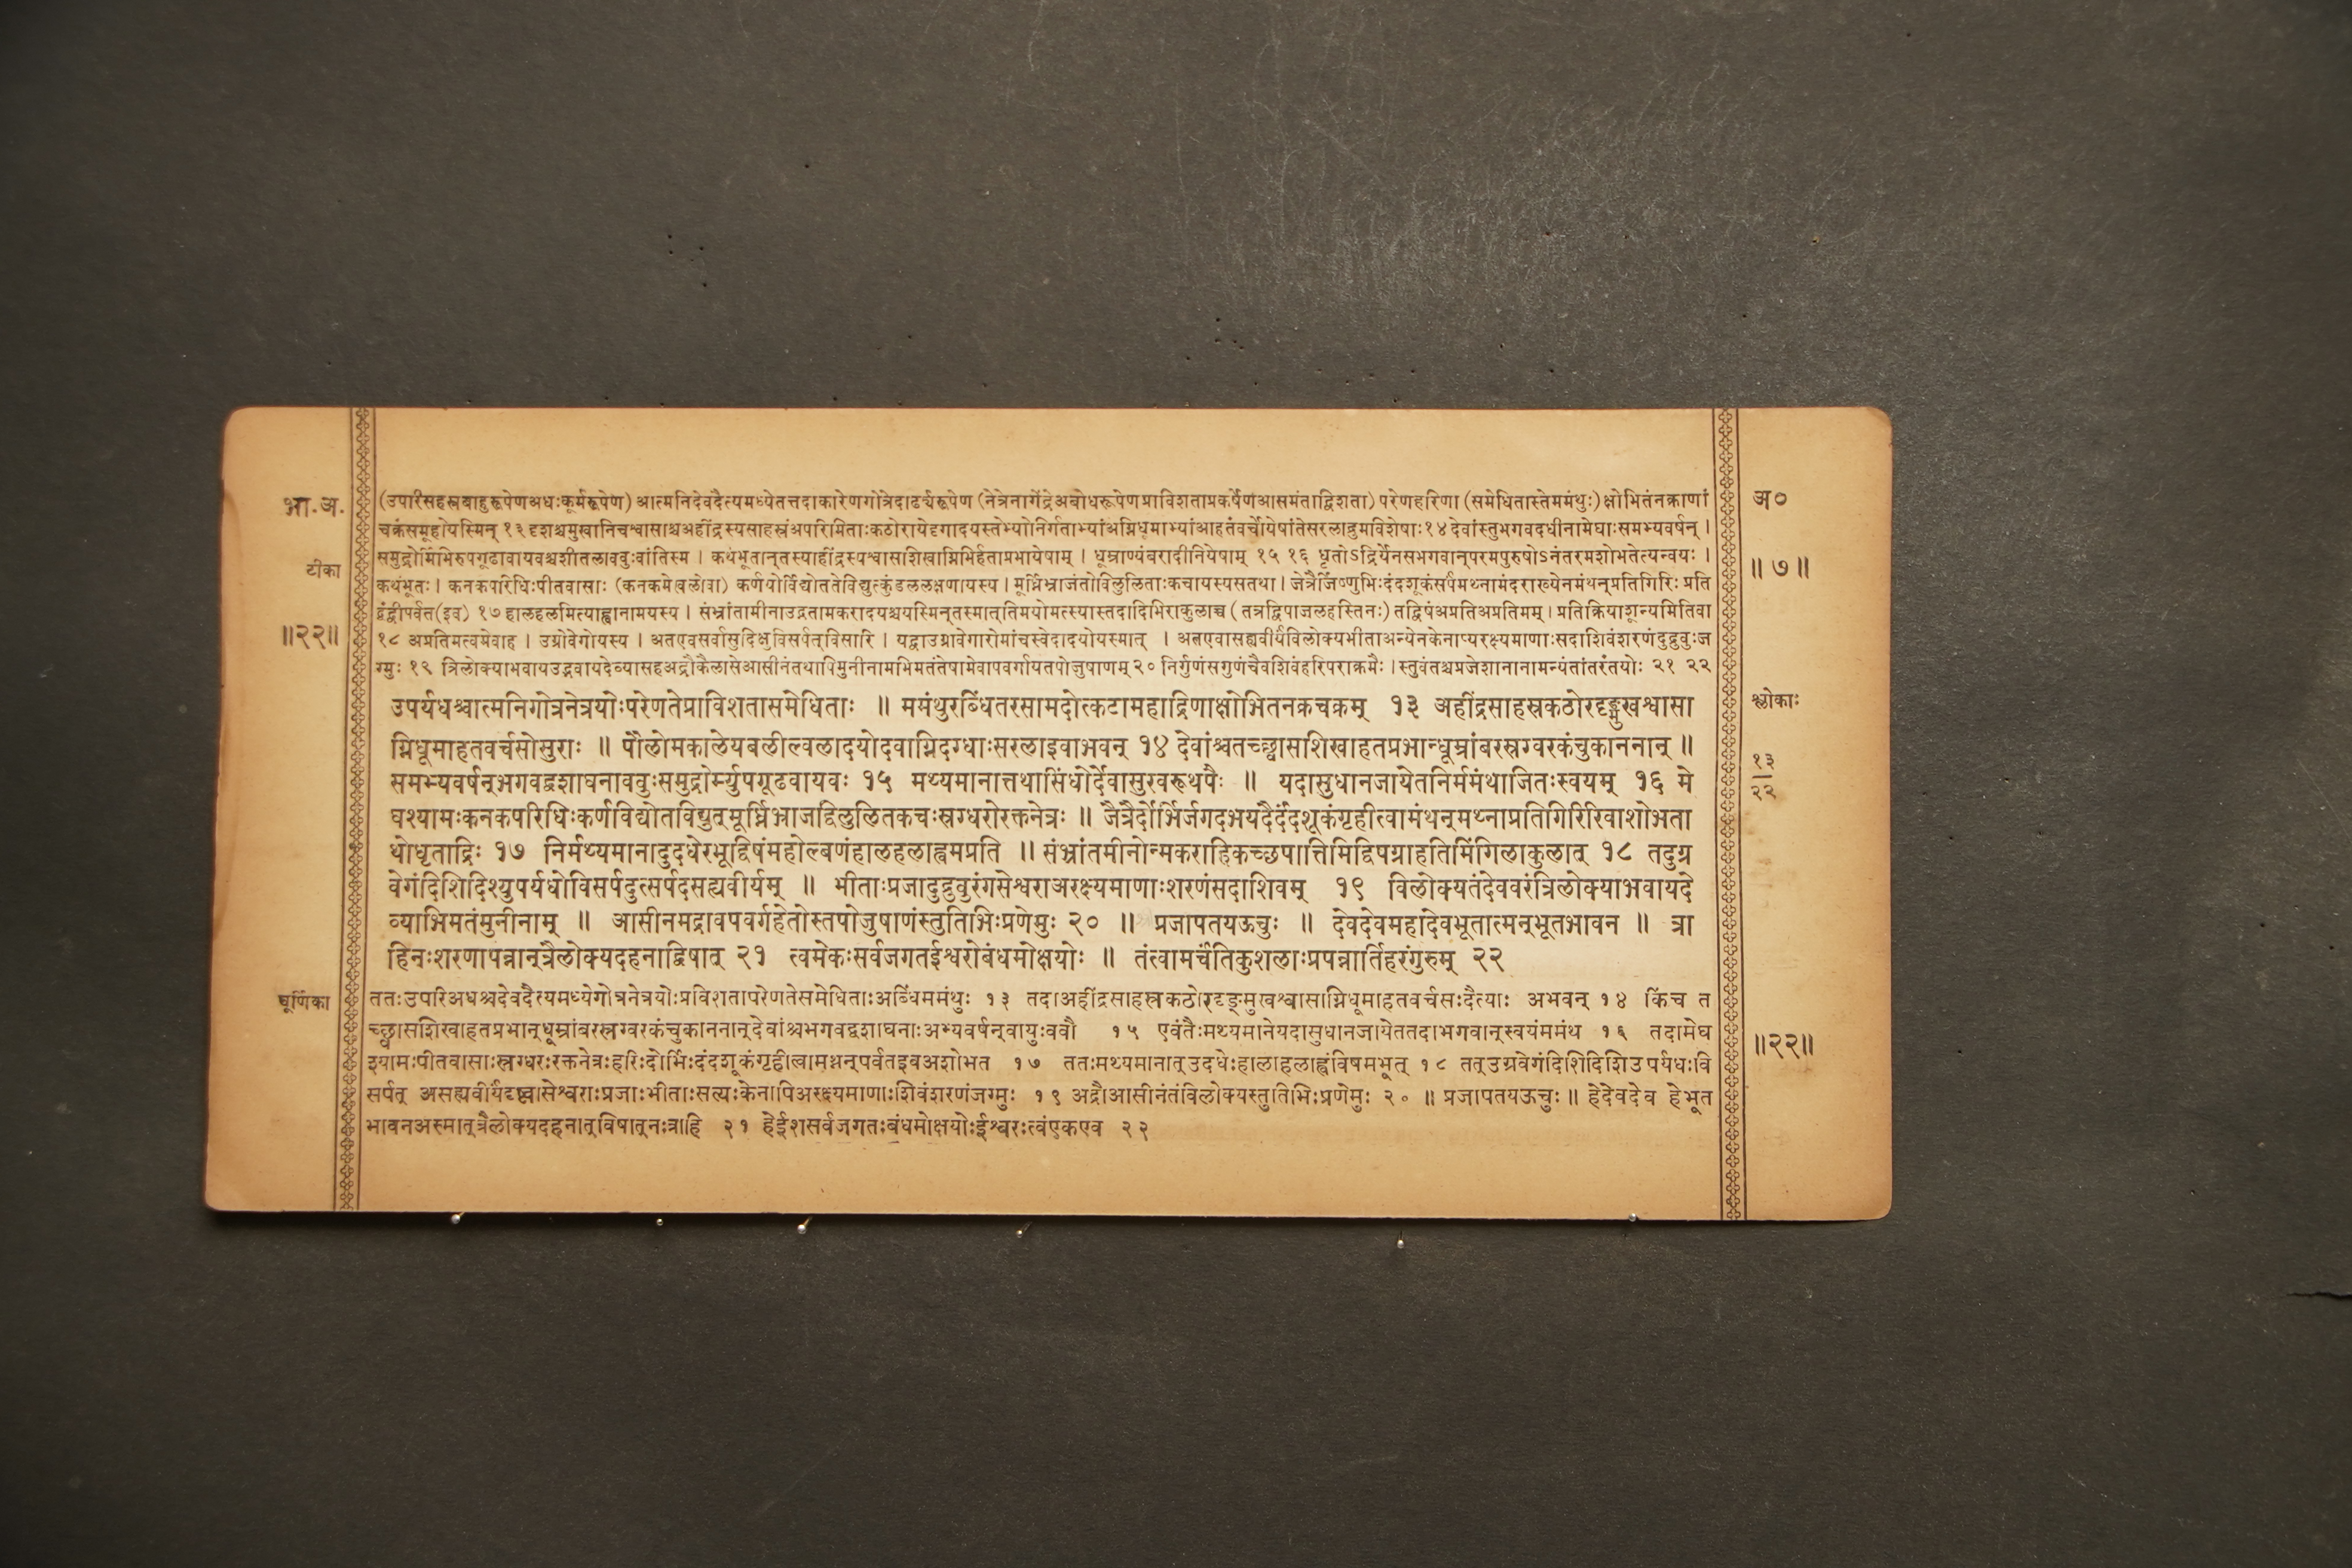 भा.अ.
टीका
॥२२॥
चूर्णिका
(उपरिसहस्रबाहुरूपेणअधःकूर्मरूपेण) आत्मनिदेवदैत्यमध्येतत्तदाकारेणगोत्रेदार्ढ्यरूपेण (नेत्रेनागेंद्रेअबोधरूपेणप्राविशताप्रकर्षेणआसमंताद्विशता) परेणहरिणा (समेधितास्तेममंथुः) क्षोभितंनक्राणां
चक्रंसमूहोयस्मिन् १३ दृशश्चमुखानिचश्वासाश्चअहींद्रस्यसाहस्रंअपरिमिताःकठोरायेदृगादयस्तेभ्योनिर्गताभ्यांअग्निधूमाभ्यांआहतंवर्चोयेषांतेसरलाद्रुमविशेषाः १४ देवांस्तुभगवदधीनामेघाःसमभ्यवर्षन् ।
समुद्रोर्मिभिरुपगूढावायवश्चशीतलाववुःवांतिस्म । कथंभूतान्तस्याहींद्रस्यश्वासशिखाग्निभिर्हताप्रभायेषाम् । धूम्राण्यंबरादीनियेषाम् १५ १६ धृतोऽद्रिर्येनसभगवान्परमपुरुषोऽनंतरमशोभतेत्यन्वयः ।
कथंभूतः । कनकपरिधिःपीतवासाः (कनकमेखलोवा) कर्णयोर्विद्योततेविद्युत्कुंडललक्षणायस्य । मूर्ध्निभ्राजंतोविलुलिताःकचायस्यसतथा । जेत्रैर्जिष्णुभिःदंदशूकंसर्पंमथ्नामंदराख्येनमंथन्प्रतिगिरिः प्रति
द्वंद्वीपर्वत(इव) १७ हालहलमित्याह्वानामयस्य । संभ्रांतामीनाउद्गतामकरादयश्चयस्मिन्तस्मात्तिमयोमत्स्यास्तदादिभिराकुलाच्च (तत्रद्विपाजलहस्तिनः) तद्विषंअप्रतिअप्रतिमम् । प्रतिक्रियाशून्यमितिवा
१८ अप्रतिमत्वमेवाह । उग्रोवेगोयस्य । अतएवसर्वासुदिक्षुविसर्पत्विसारि । यद्वाउग्रावेगारोमांचस्वेदादयोयस्मात् । अतएवासह्यवीर्यंविलोक्यभीताअन्येनकेनाप्यरक्ष्यमाणाःसदाशिवंशरणंदुद्रुवुःज
ग्मुः १९ त्रिलोक्याभवायउद्भवायदेव्यासहअद्रौकैलासेआसीनंतथापिमुनीनामभिमतंतेषामेवापवर्गायतपोजुषाणम् २० निर्गुणंसगुणंचैवशिवंहरिपराक्रमैः । स्तुवंतश्चप्रजेशानानामन्यंतांतरंतयोः २१ २२
उपर्यधश्चात्मनिगोत्रनेत्रयोःपरेणतेप्राविशतासमेधिताः ॥ ममंथुरब्धिंतरसामदोत्कटामहाद्रिणाक्षोभितनक्रचक्रम् १३ अहींद्रसाहस्रकठोरदृङ्मुखश्वासा
ग्निधूमाहतवर्चसोसुराः ॥ पौलोमकालेयबलील्वलादयोदवाग्निदग्धाःसरलाइवाभवन् १४ देवांश्चतच्छ्वासशिखाहतप्रभान्धूम्रांबरस्रग्वरकंचुकाननान् ॥
समभ्यवर्षन्भगवद्वशाघनाववुःसमुद्रोर्म्युपगूढवायवः १५ मथ्यमानात्तथासिंधोर्देवासुरवरूथपैः ॥ यदासुधानजायेतनिर्ममंथाजितःस्वयम् १६ मे
घश्यामःकनकपरिधिःकर्णविद्योतविद्युत्मूर्ध्निभ्राजद्विलुलितकचःस्रग्धरोरक्तनेत्रः ॥ जैत्रैर्दोर्भिर्जगदभयदैर्दंदशूकंगृहीत्वामंथन्मथ्नाप्रतिगिरिरिवाशोभता
थोधृताद्रिः १७ निर्मथ्यमानादुदधेरभूद्विषंमहोल्बणंहालहलाह्वमप्रति ॥ संभ्रांतमीनोन्मकराहिकच्छपात्तिमिद्विपग्राहतिमिंगिलाकुलात् १८ तदुग्र
वेगंदिशिदिश्युपर्यधोविसर्पदुत्सर्पदसह्यवीर्यम् ॥ भीताःप्रजादुद्रुवुरंगसेश्वराअरक्ष्यमाणाःशरणंसदाशिवम् १९ विलोक्यतंदेववरंत्रिलोक्याभवायदे
व्याभिमतंमुनीनाम् ॥ आसीनमद्रावपवर्गहेतोस्तपोजुषाणंस्तुतिभिःप्रणेमुः २० ॥ प्रजापतयऊचुः ॥ देवदेवमहादेवभूतात्मन्भूतभावन ॥ त्रा
हिनःशरणापन्नान्त्रैलोक्यदहनाद्विषात् २१ त्वमेकःसर्वजगतईश्वरोबंधमोक्षयोः ॥ तंत्वामर्चंतिकुशलाःप्रपन्नार्तिहरंगुरुम् २२
ततःउपरिअधश्चदेवदैत्यमध्येगोत्रनेत्रयोःप्रविशतापरेणतेसमेधिताःअब्धिंममंथुः १३ तदाअहींद्रसाहस्रकठोरदृङ्मुखश्वासाग्निधूमाहतवर्चसःदैत्याः अभवन् १४ किंच त
च्छ्वासशिखाहतप्रभान्धूम्रांबरस्रग्वरकंचुकाननान्देवांश्चभगवद्वशाघनाःअभ्यवर्षन्वायुःववौ १५ एवंतैःमथ्यमानेयदासुधानजायेततदाभगवान्स्वयंममंथ १६ तदामेघ
श्यामःपीतवासाःस्रग्धरःरक्तनेत्रःहरिःदोर्भिःदंदशूकंगृहीत्वामथ्नन्पर्वतइवअशोभत १७ ततःमथ्यमानात्उदधेःहालाहलाह्वंविषमभूत् १८ तत्उग्रवेगंदिशिदिशिउपर्यधःवि
सर्पत् असह्यवीर्यंदृष्ट्वासेश्वराःप्रजाःभीताःसत्यःकेनापिअरक्ष्यमाणाःशिवंशरणंजग्मुः १९ अद्रौआसीनंतंविलोक्यस्तुतिभिःप्रणेमुः २० ॥ प्रजापतयऊचुः ॥ हेदेवदेव हेभूत
भावनअस्मात्त्रैलोक्यदहनात्विषात्नःत्राहि २१ हेईशसर्वजगतःबंधमोक्षयोःईश्वरःत्वंएकएव २२
अ०
॥७॥
श्लोकाः
१३
२२
॥२२॥